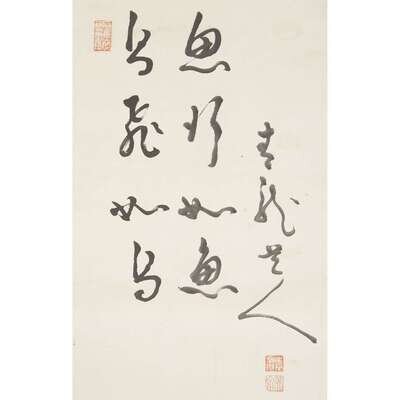 鳥飛如鳥
魚行如魚
青龍道人